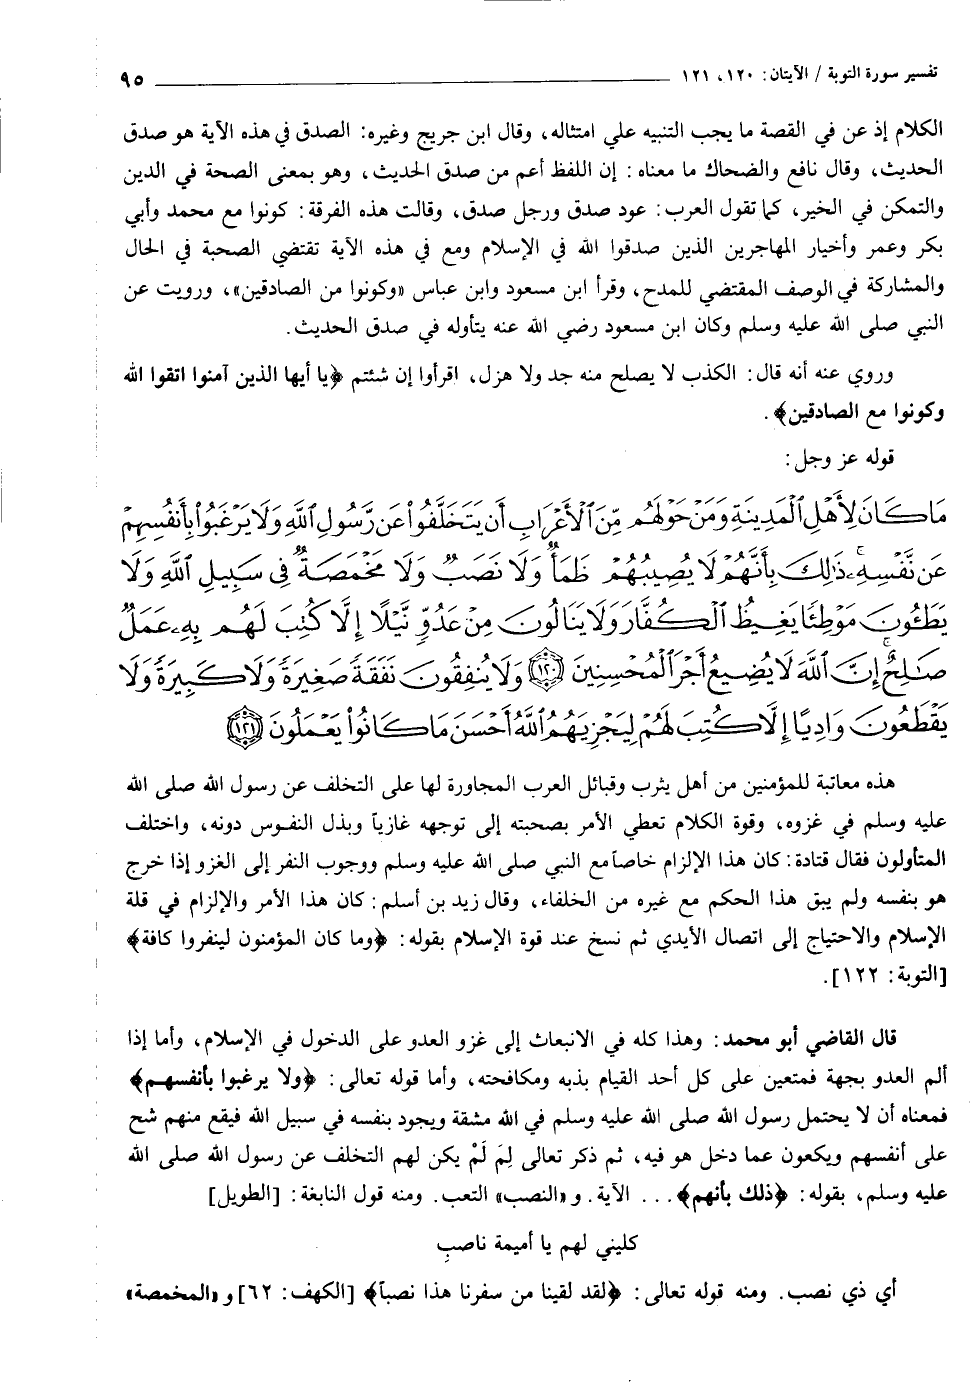 تفسير سورة التوبة / الآيتان: ١٢٠، ١٢١ ٩٥
الكلام إذ عن في القصة ما يجب التنبيه علي امتثاله، وقال ابن جريج وغيره: الصدق في هذه الآية هو صدق
الحديث، وقال نافع والضحاك ما معناه: إن اللفظ أعم من صدق الحديث، وهو بمعنى الصحة في الدين
والتمكن في الخير، كما تقول العرب: عود صدق ورجل صدق، وقالت هذه الفرقة: كونوا مع محمد وأبي
بكر وعمر وأخيار المهاجرين الذين صدقوا الله في الإسلام ومع في هذه الآية تقتضي الصحبة في الحال
والمشاركة في الوصف المقتضي للمدح، وقرأ ابن مسعود وابن عباس «وكونوا من الصادقين»، ورويت عن
النبي صلى الله عليه وسلم وكان ابن مسعود رضي الله عنه يتأوله في صدق الحديث.
وروي عنه أنه قال: الكذب لا يصلح منه جد ولا هزل، اقرأوا إن شئتم ﴿يا أيها الذين آمنوا اتقوا الله
وكونوا مع الصادقين﴾.
قوله عز وجل:
مَا كَانَ لِأَهْلِ ٱلْمَدِينَةِ وَمَنْ حَوْلَهُم مِّنَ ٱلْأَعْرَابِ أَن يَتَخَلَّفُوا۟ عَن رَّسُولِ ٱللَّهِ وَلَا يَرْغَبُوا۟ بِأَنفُسِهِمْ
عَن نَّفْسِهِۦ ۚ ذَٰلِكَ بِأَنَّهُمْ لَا يُصِيبُهُمْ ظَمَأٌ وَلَا نَصَبٌ وَلَا مَخْمَصَةٌ فِى سَبِيلِ ٱللَّهِ وَلَا
يَطَـُٔونَ مَوْطِئًا يَغِيظُ ٱلْكُفَّارَ وَلَا يَنَالُونَ مِنْ عَدُوٍّ نَّيْلًا إِلَّا كُتِبَ لَهُم بِهِۦ عَمَلٌ
صَـٰلِحٌ ۚ إِنَّ ٱللَّهَ لَا يُضِيعُ أَجْرَ ٱلْمُحْسِنِينَ ﴿١٢٠﴾ وَلَا يُنفِقُونَ نَفَقَةً صَغِيرَةً وَلَا كَبِيرَةً وَلَا
يَقْطَعُونَ وَادِيًا إِلَّا كُتِبَ لَهُمْ لِيَجْزِيَهُمُ ٱللَّهُ أَحْسَنَ مَا كَانُوا۟ يَعْمَلُونَ ﴿١٢١﴾
هذه معاتبة للمؤمنين من أهل يثرب وقبائل العرب المجاورة لها على التخلف عن رسول الله صلى الله
عليه وسلم في غزوه، وقوة الكلام تعطي الأمر بصحبته إلى توجهه غازياً وبذل النفوس دونه، واختلف
المتأولون فقال قتادة: كان هذا الإلزام خاصاً مع النبي صلى الله عليه وسلم ووجوب النفر إلى الغزو إذا خرج
هو بنفسه ولم يبق هذا الحكم مع غيره من الخلفاء، وقال زيد بن أسلم: كان هذا الأمر والإلزام في قلة
الإسلام والاحتياج إلى اتصال الأيدي ثم نسخ عند قوة الإسلام بقوله: ﴿وما كان المؤمنون لينفروا كافة﴾
[التوبة: ١٢٢].
قال القاضي أبو محمد: وهذا كله في الانبعاث إلى غزو العدو على الدخول في الإسلام، وأما إذا
ألم العدو بجهة فمتعين على كل أحد القيام بذبه ومكافحته، وأما قوله تعالى: ﴿ولا يرغبوا بأنفسهم﴾
فمعناه أن لا يحتمل رسول الله صلى الله عليه وسلم في الله مشقة ويجود بنفسه في سبيل الله فيقع منهم شح
على أنفسهم ويكعون عما دخل هو فيه، ثم ذكر تعالى لِمَ لَمْ يكن لهم التخلف عن رسول الله صلى الله
عليه وسلم، بقوله: ﴿ذلك بأنهم﴾... الآية. و «النصب» التعب. ومنه قول النابغة: [الطويل]
كليني لهم يا أميمة ناصبِ
أي ذي نصب. ومنه قوله تعالى: ﴿لقد لقينا من سفرنا هذا نصباً﴾ [الكهف: ٦٢] و «المخمصة»